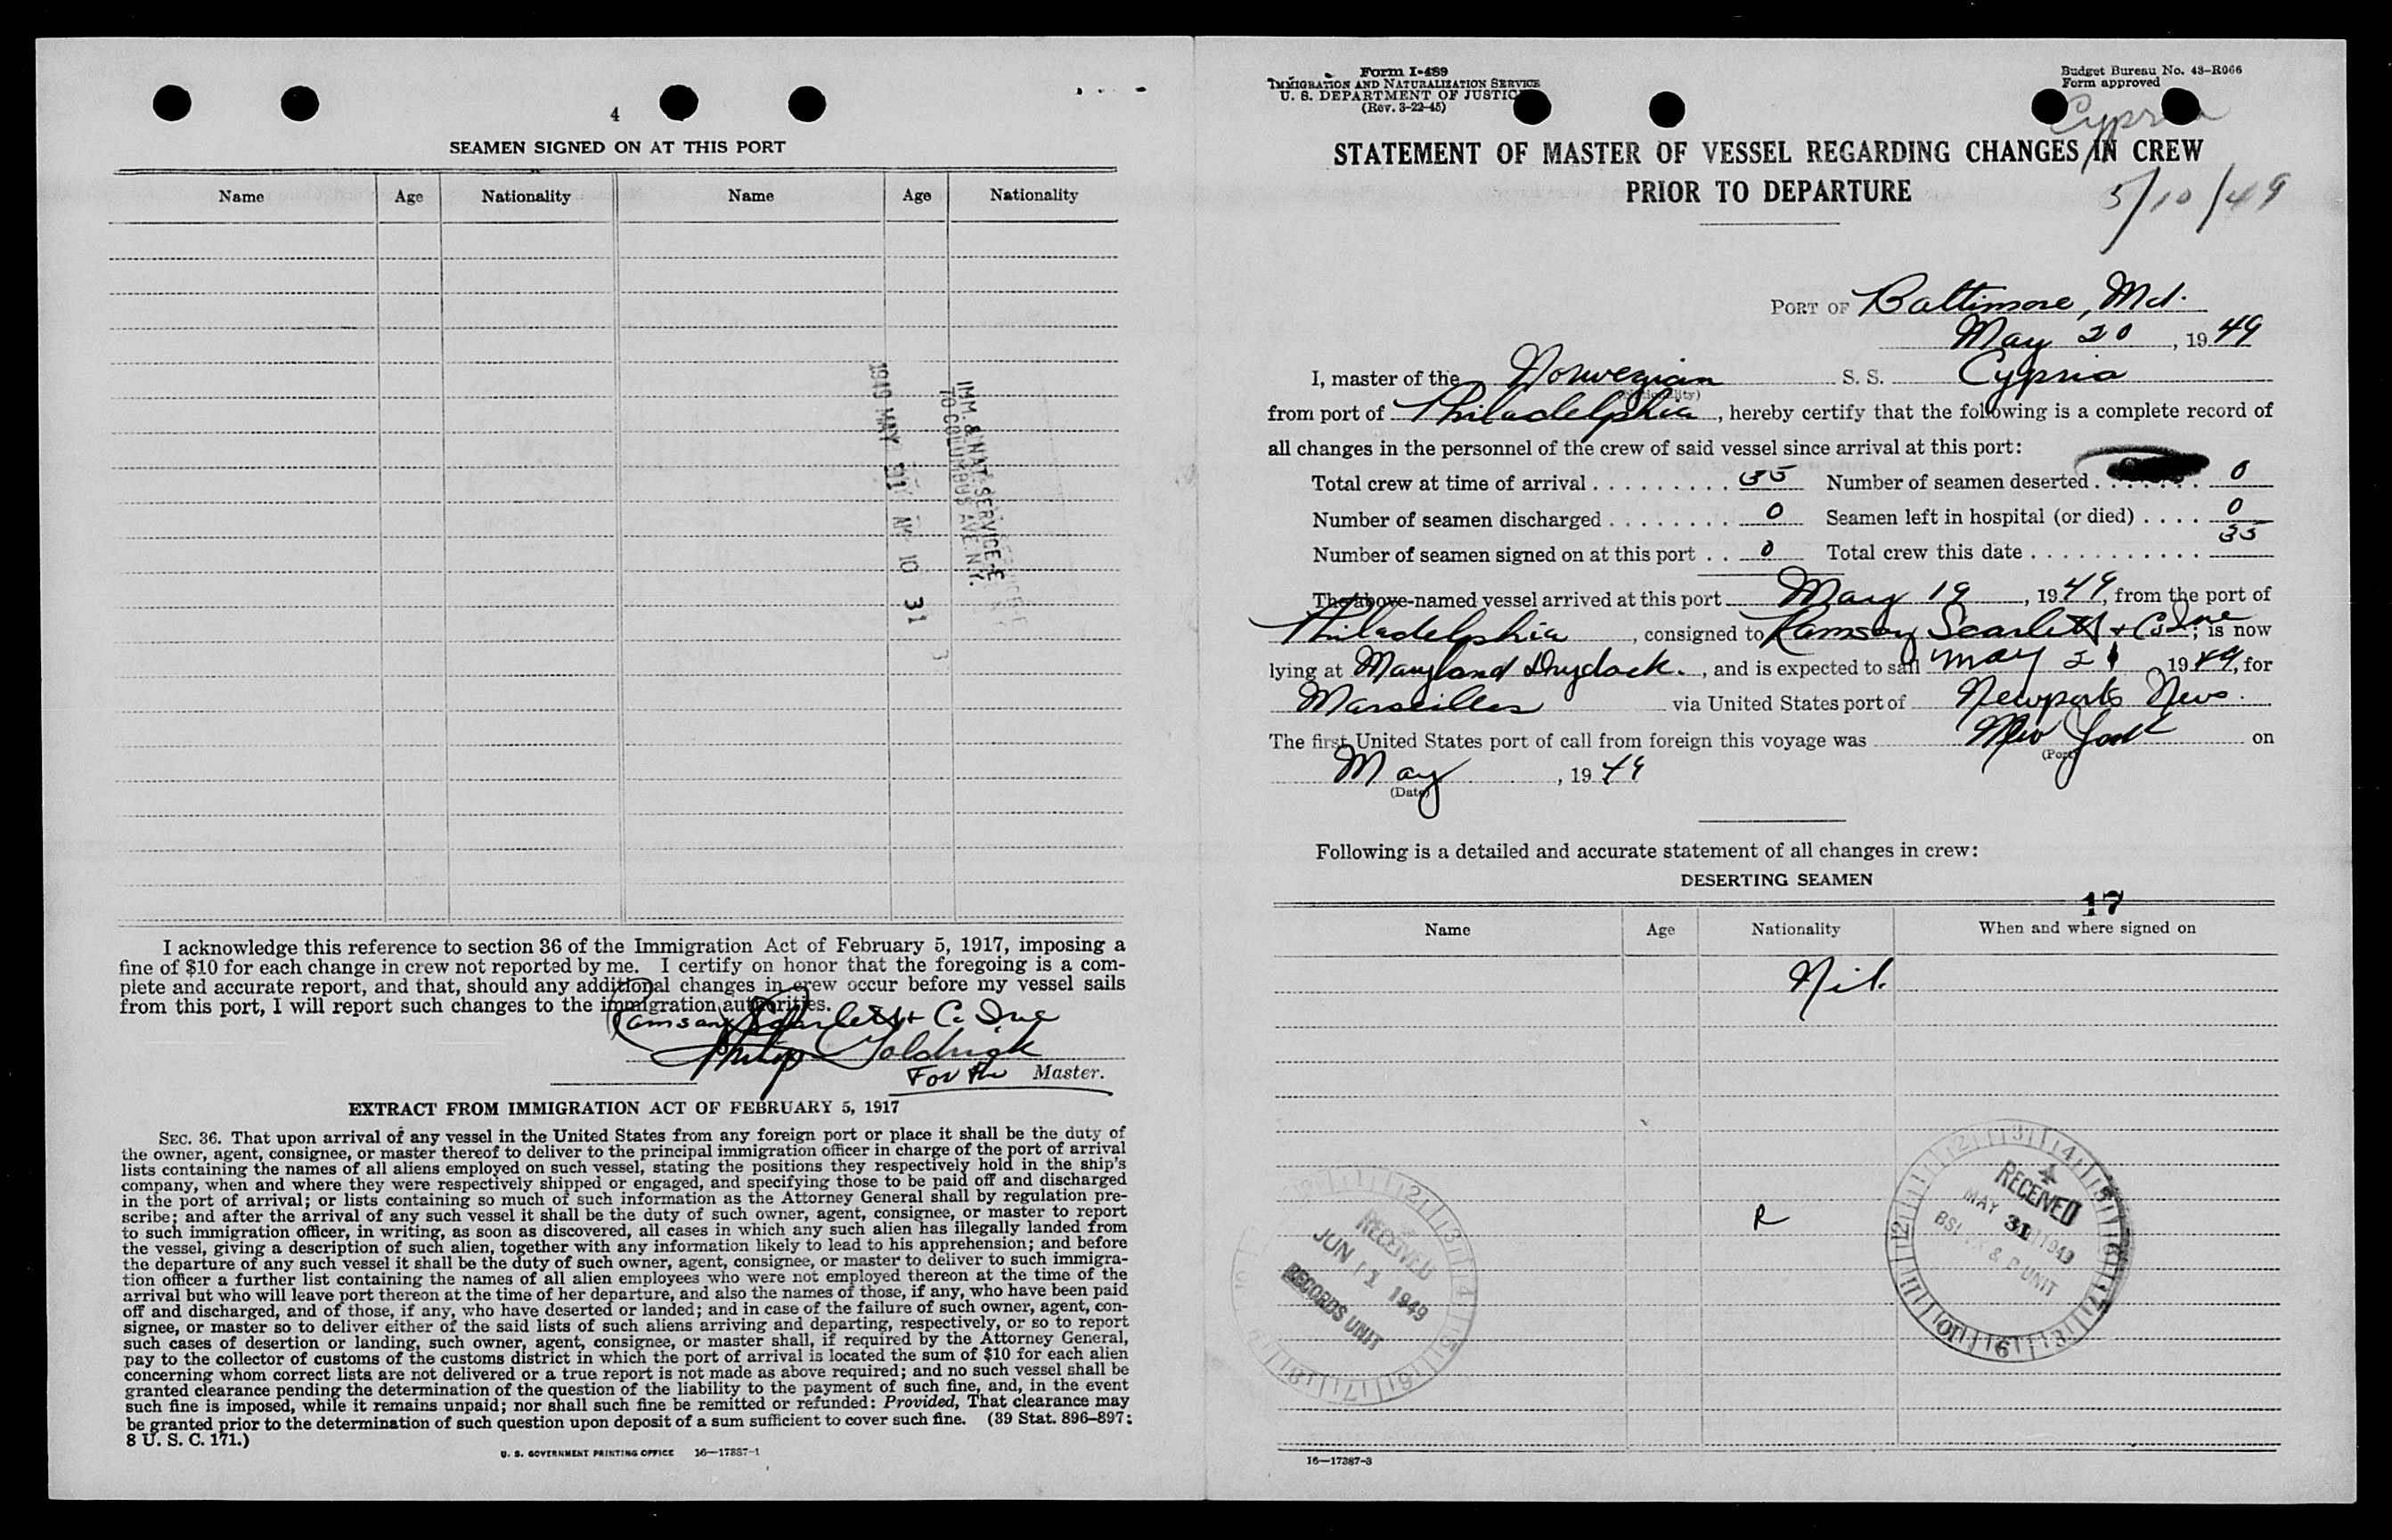 4
SEAMEN SIGNED ON AT THIS PORT
Name Age Nationality Name Age Nationality
IMM. & NAT. SERVICE
70 COLUMBUS AVE. N.Y.
1949 MAY 31 AM 10 31
I acknowledge this reference to section 36 of the Immigration Act of February 5, 1917, imposing a
fine of $10 for each change in crew not reported by me. I certify on honor that the foregoing is a com-
plete and accurate report, and that, should any additional changes in crew occur before my vessel sails
from this port, I will report such changes to the immigration authorities.
Ramsay Scarlett + Co Inc
Philip Goldrick
For the Master.
EXTRACT FROM IMMIGRATION ACT OF FEBRUARY 5, 1917
SEC. 36. That upon arrival of any vessel in the United States from any foreign port or place it shall be the duty of
the owner, agent, consignee, or master thereof to deliver to the principal immigration officer in charge of the port of arrival
lists containing the names of all aliens employed on such vessel, stating the positions they respectively hold in the ship's
company, when and where they were respectively shipped or engaged, and specifying those to be paid off and discharged
in the port of arrival; or lists containing so much of such information as the Attorney General shall by regulation pre-
scribe; and after the arrival of any such vessel it shall be the duty of such owner, agent, consignee, or master to report
to such immigration officer, in writing, as soon as discovered, all cases in which any such alien has illegally landed from
the vessel, giving a description of such alien, together with any information likely to lead to his apprehension; and before
the departure of any such vessel it shall be the duty of such owner, agent, consignee, or master to deliver to such immigra-
tion officer a further list containing the names of all alien employees who were not employed thereon at the time of the
arrival but who will leave port thereon at the time of her departure, and also the names of those, if any, who have been paid
off and discharged, and of those, if any, who have deserted or landed; and in case of the failure of such owner, agent, con-
signee, or master so to deliver either of the said lists of such aliens arriving and departing, respectively, or so to report
such cases of desertion or landing, such owner, agent, consignee, or master shall, if required by the Attorney General,
pay to the collector of customs of the customs district in which the port of arrival is located the sum of $10 for each alien
concerning whom correct lists are not delivered or a true report is not made as above required; and no such vessel shall be
granted clearance pending the determination of the question of the liability to the payment of such fine, and, in the event
such fine is imposed, while it remains unpaid; nor shall such fine be remitted or refunded: Provided, That clearance may
be granted prior to the determination of such question upon deposit of a sum sufficient to cover such fine. (39 Stat. 896-897;
8 U. S. C. 171.)
U. S. GOVERNMENT PRINTING OFFICE 16—17387-1
Form I-489
IMMIGRATION AND NATURALIZATION SERVICE
U. S. DEPARTMENT OF JUSTICE
(Rev. 3-22-45)
Budget Bureau No. 43-R066
Form approved
Cypria
STATEMENT OF MASTER OF VESSEL REGARDING CHANGES IN CREW
PRIOR TO DEPARTURE
5/10/49
PORT OF Baltimore, Md.
May 20, 1949
I, master of the Norwegian S. S. Cypria
(Nationality)
from port of Philadelphia, hereby certify that the following is a complete record of
all changes in the personnel of the crew of said vessel since arrival at this port:
Total crew at time of arrival . . . . . . . . . 35 Number of seamen deserted . . . . . . . 0
Number of seamen discharged . . . . . . . . 0 Seamen left in hospital (or died) . . . . 0
Number of seamen signed on at this port . . 0 Total crew this date . . . . . . . . . . . 35
The above-named vessel arrived at this port May 19, 1949, from the port of
Philadelphia, consigned to Ramsay Scarlett + Co Inc; is now
lying at Maryland Drydock., and is expected to sail May 21 1949, for
Marseilles via United States port of Newports News.
The first United States port of call from foreign this voyage was New York on
(Port)
May, 1949
(Date)
Following is a detailed and accurate statement of all changes in crew:
DESERTING SEAMEN
17
Name Age Nationality When and where signed on
Nil.
R
RECEIVED
MAY 31 1949
UNIT
RECEIVED
JUN 1 1949
RECORDS UNIT
16—17387-3